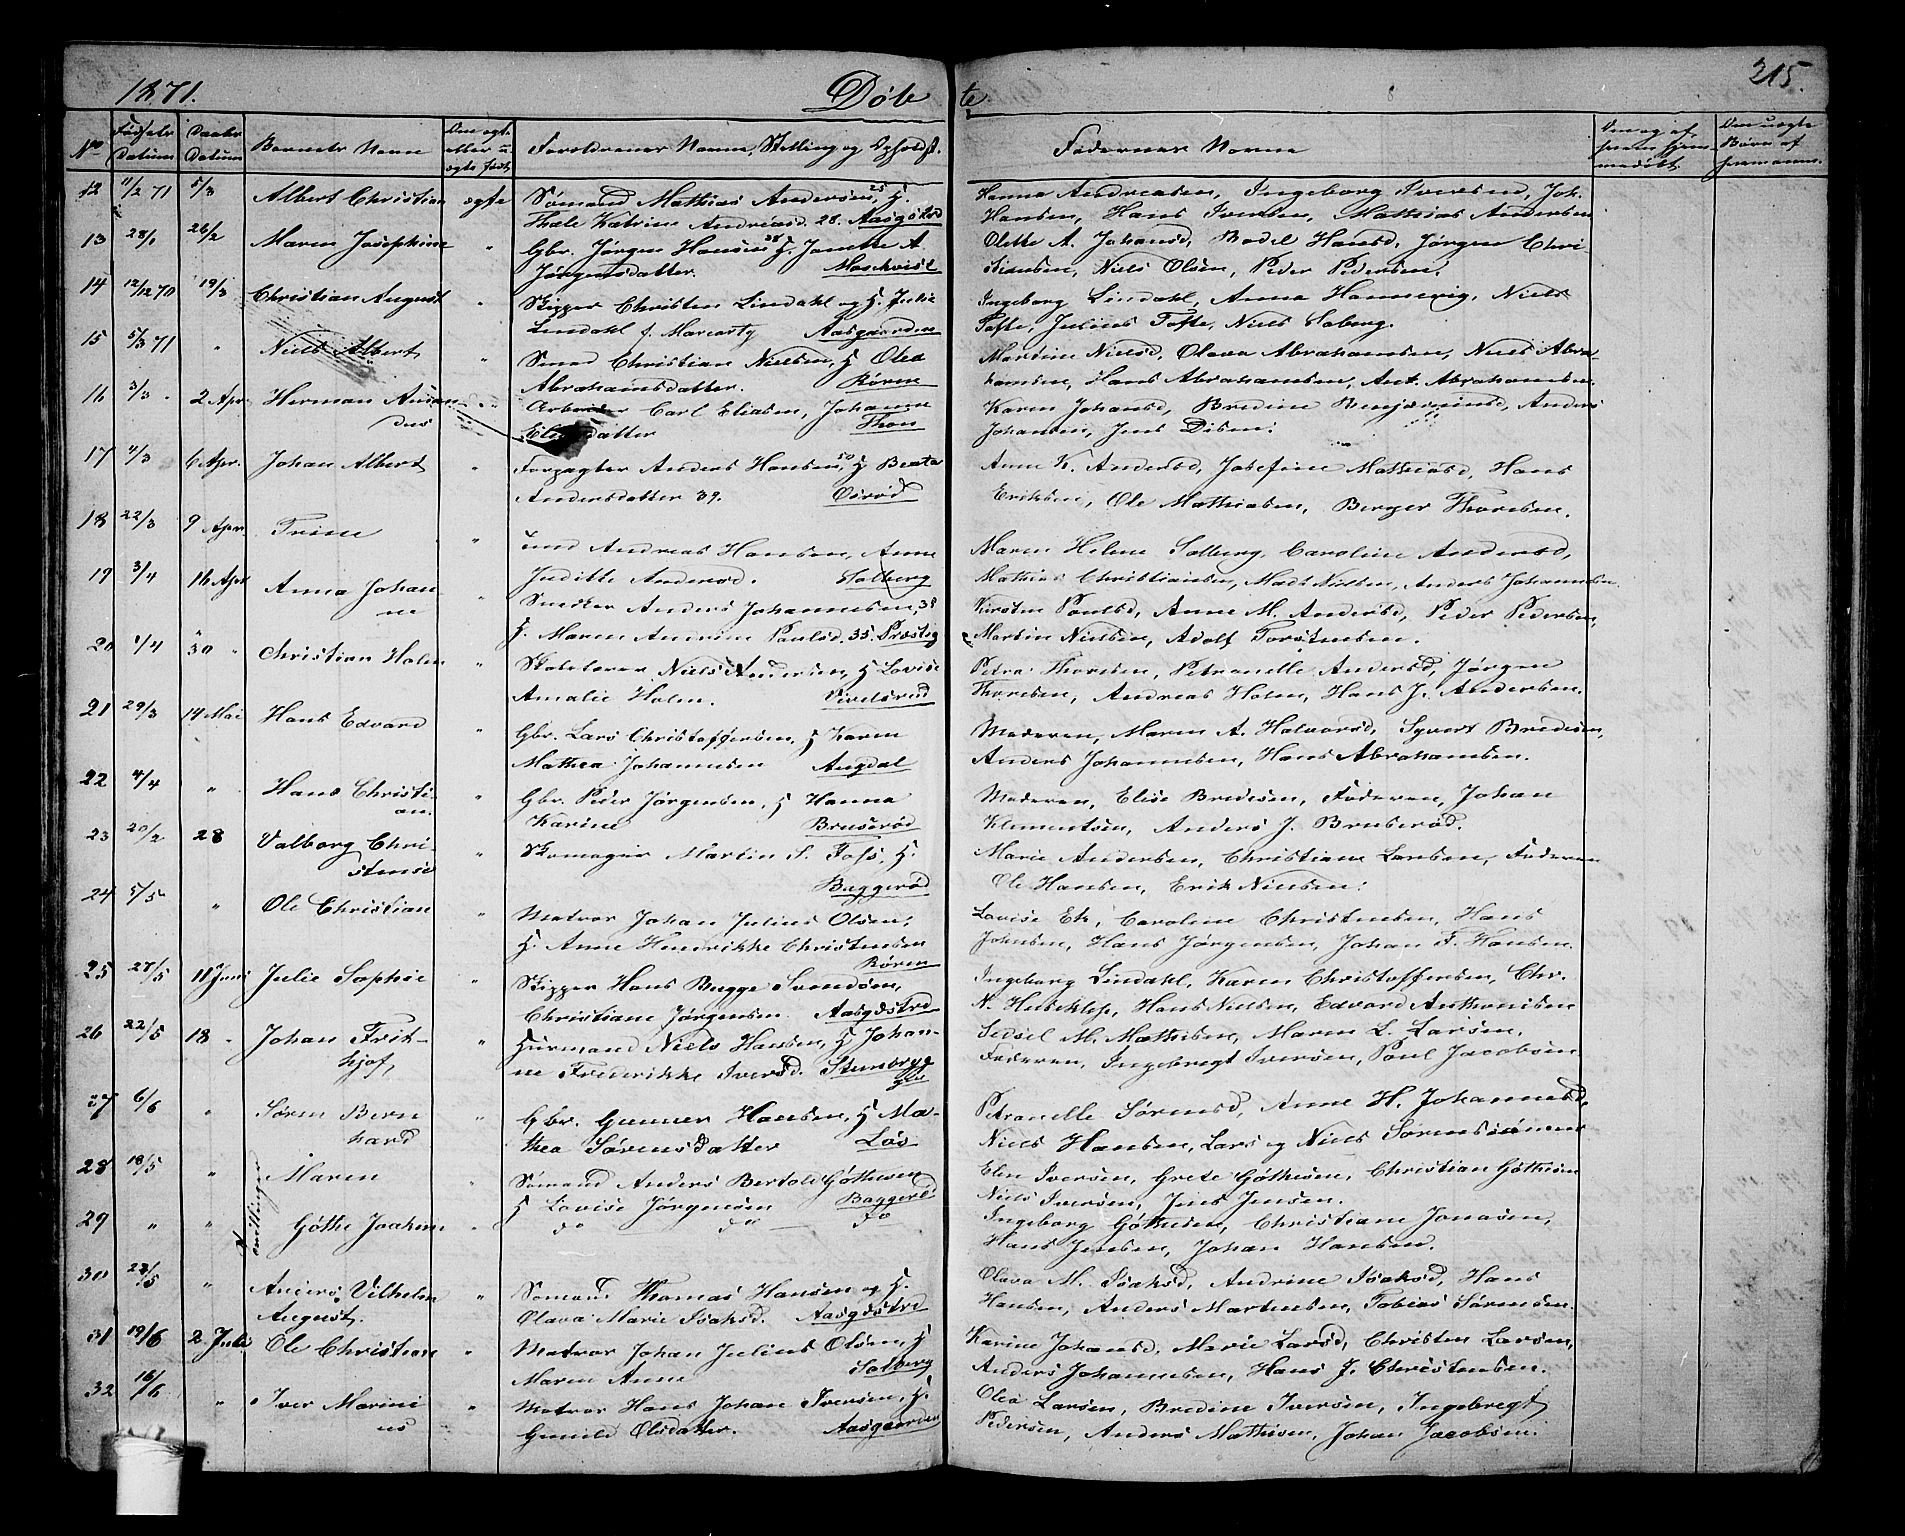 1871.
Døbte
215.
No
Fødsels Datum
Daabs Datum
Barnets Navn
Om ægte eller uægte født
Forældrenes Navne, Stilling og Opholdst.
Faddernes Navne
12 11/2 71 5/3 Albert Christian ægte Sömand Mathias Andersen, 25 H.
Thale Katrine Andreasd. 28. Aasgdstrd
Hanna Andreasen, Ingeborg Iversen, Joh.
Hansen, Hans Iversen, Mathias Andersen
13 28/1 26/2 Maren Josephine " Gbr. Jørgen Hansen 38 H. Janette A.
Jørgensdatter.
Olette A. Johansd, Bodel Hansd, Jørgen Chri
stensen, Niels Olsen, Peder Pedersen.
14 12/12 70 19/3 Christian August " Skipper Christen Lindahl og H. Julie
Lindahl f. Mariarty Aasgaarden
Ingeborg Lindahl, Anna Hannevig, Niels
Tofte, Julius Tofte, Niels Soberg.
15 5/3 71 " Niels Albert " Smed Christian Nielsen, H Olea
Abrahamsdatter. Røren
Martine Nielsd, Olava Abrahamsen, Niels Abra-
hamsen, Hans Abrahamsen, Ant. Abrahamsen.
16 3/3 2 Apr. Herman Aman
dus " Arbeider Carl Eliasen, Johanne
datter Thon
Karen Johansd, Bredine Benjaminsd, Anders
Johansen, Jens Disen.
17 4/3 6 Apr. Johan Albert " Forpagter Anders Hansen, 50 H Beate
Andersdatter 39. Osröd
Anne K. Andersd, Josefine Mathiasd, Hans
Eriksen, Ole Mathisen, Berger Thoresen.
18 22/3 9 Apr. Trine " Andreas Hansen, Anne
Juditte Andersd. Solberg
Maren Helene Solberg, Caroline Andersd,
Mathias Christiansen, Mads Nielsen, Anders Johannesen.
19 3/4 16 Apr Anna Johan
ne " Snedker Anders Johannesen, 38
H. Maren Andrine Paulsd. 35. Præsteg
Kirsten Poulsd, Anne M. Andersd, Peder Pedersen,
Martin Nielsen, Adolf Torstensen.
20 1/4 30 " Christian Holm " Skoleholder Niels Andersen, H Lovise
Amalie Holm. Vivelsröd
Petra Thoresen, Petranelle Andersd, Jørgen
Thoresen, Andreas Holm, Hans J. Andersen.
21 29/3 14 Mai Hans Edvard " Gbr. Lars Christoffersen, H Karen
Mathea Johannesen Augdal
Moderen, Maren A. Halvorsd, Syvert Bredesen,
Anders Johannesen, Hans Abrahamsen.
22 4/4 " Hans Christi-
an. " Gbr. Peder Jørgensen, H Hanna
Karine Bruseröd
Moderen, Elise Bredesen, Faderen, Johan
Klementsen, Anders J. Bruseröd.
23 20/2 28 Valborg Chri-
stense " Skomager Martin S. Foss, H.
Buggeröd
Marie Andersen, Christiane Larsen, Faderen
Ole Hansen, Erik Nielsen.
24 5/5 " Ole Christian " Matros Johan Julius Olsen,
H. Anne Hendrikke Christensen
Røren
Lovise Ek, Caroline Christensen, Hans
Johnsen, Hans Jørgensen, Johan F. Hansen.
25 27/5 11 Juni Julie Sophie " Skipper Hans Bugge Svendsen,
Christiane Jørgensen. Aasgdstrd
Ingeborg Lindahl, Karen Christoffersen, Chr.
Hans Nielsen, Edvard Anthonisen
26 22/5 18 " Johan Frit-
hjof, " Huusmand Niels Hansen, H Johan-
ne Frederikke Iversd. Stenbrygg
Sidsel M. Mathisen, Maren L. Larsen,
Faderen, Ingebregt Iversen, Poul Jacobsen
27 6/6 " Søren Bern
hard " Gbr. Gunner Hansen, H Ma-
thea Sørensdatter Løs
Petranelle Sørensd, Anne H. Johannesd,
Niels Hansen, Lars og Niels Sørensönner
28 18/5 " Maren " Sømand Anders Bertold Göthesen
H Lovise Jørgensen Baggeröd
Elen Iversen, Grete Göthesen, Christian Göthesen
Niels Iversen, Jens Jensen.
Tvillinger
29 " " Göthe Joachim " do do do
Ingeborg Göthesen, Christiane Jonasen,
Hans Jensen, Johan Hansen.
30 23/5 " Anders Vilhelm
August. " Sømand Thomas Hansen og H.
Olava Marie Isaksd. Aasgdstrd
Olava M. Isaksd, Andrine Isaksd, Hans
Hansen, Anders Martinsen, Tobias Sørensen.
31 19/6 2 Juli Ole Christian " Matros Johan Julius Olsen, H
Maren Anne Solberg
Karine Johansd, Marie Larsd, Christen Larsen,
Anders Johannesen, Hans J. Christensen.
32 16/6 " Iver Marini
us " Matros Hans Johan Iversen, H.
Gunild Olsdatter. Aasgaarden
Olea Larsen, Bredine Iversen, Ingebregt
Pedersen, Anders Mathisen, Johan Jacobsen.